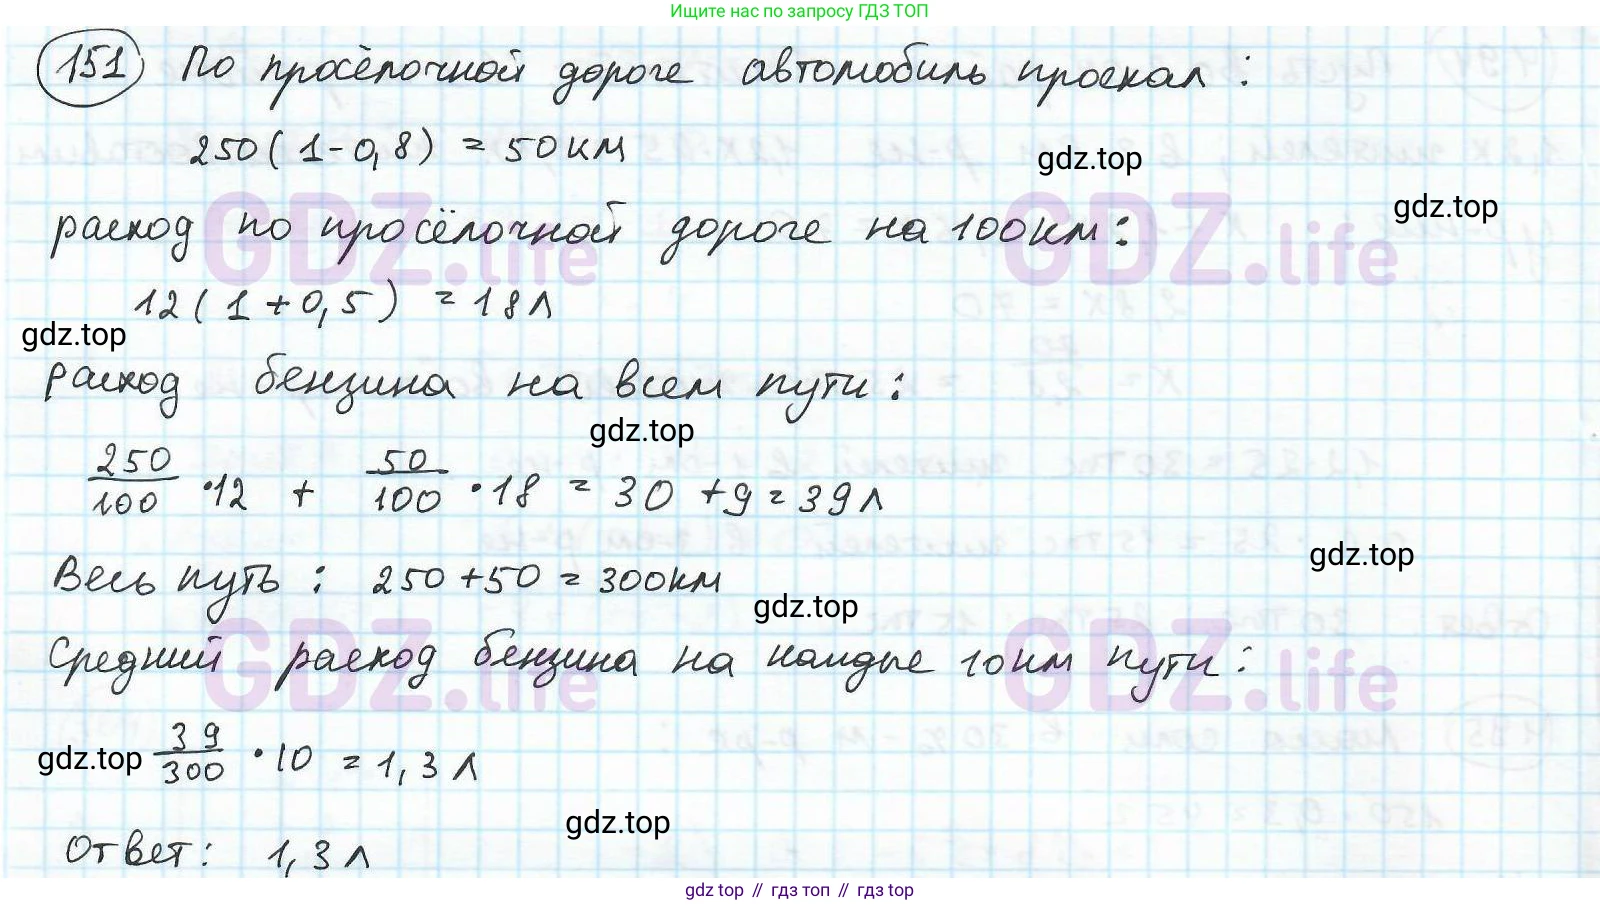 Ищите нас по запросу ГДЗ ТОП
151 По просёлочной дороге автомобиль проехал:
250(1-0,8) = 50км
gdz.top
gdz.top
расход по просёлочной дороге на 100км:
12(1+0,5) = 18л
gdz.top
расход бензина на всем пути:
gdz.top
250/100 · 12 + 50/100 · 18 = 30 + 9 = 39л
gdz.top
Весь путь: 250+50 = 300км
gdz.top
Средний расход бензина на каждые 10км пути:
gdz.top
39/300 · 10 = 1,3л
gdz.top
Ответ: 1,3л
GDZ.life
GDZ.life
GDZ.life
GDZ.life
gdz top // гдз топ // gdz top